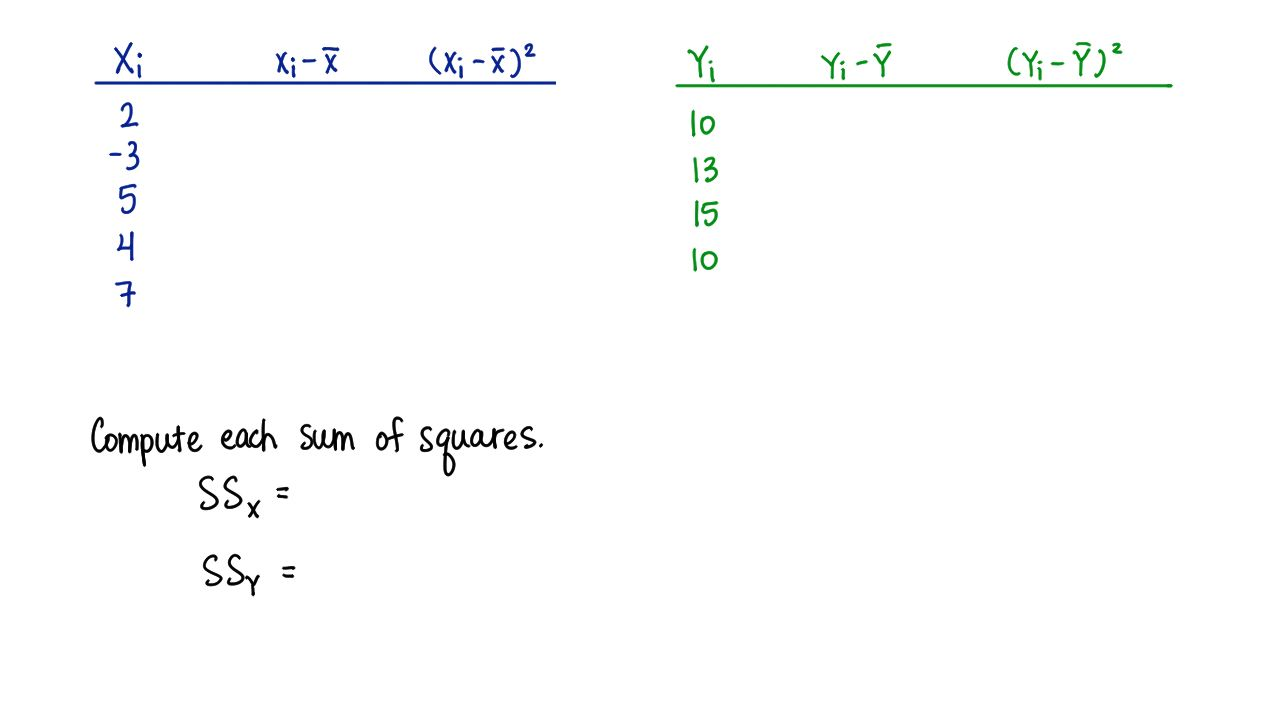 Xᵢ xᵢ - x̄ (xᵢ - x̄)²
2
-3
5
4
7
Yᵢ Yᵢ - Ȳ (Yᵢ - Ȳ)²
10
13
15
10
Compute each sum of squares.
SSₓ =
SS_Y =